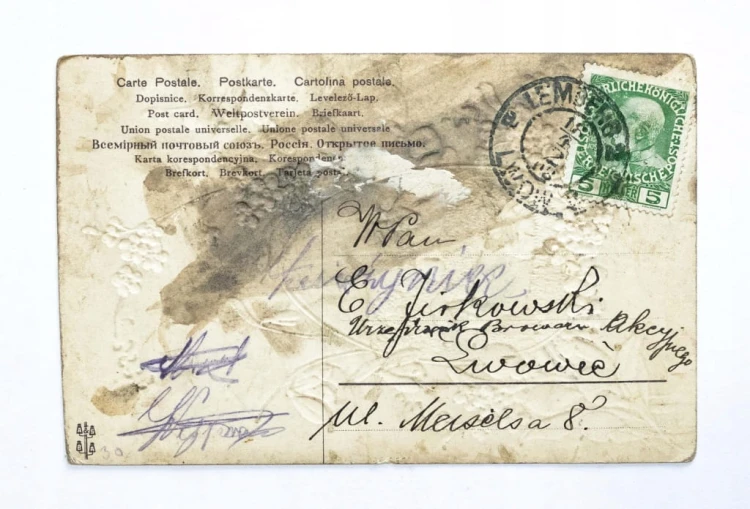 Carte Postale. Postkarte. Cartolina postale.
Dopisnice. Korrespondenzkarte. Levelező-Lap.
Post card. Weltpostverein. Briefkaart.
Union postale universelle. Unione postale universale
Всемірный почтовый союзъ. Россія. Открытое письмо.
Karta korespondencyjna. Korespondent
Brefkort. Brevkort. Tarjeta posta
LEMBERG
LWÓW
5 5
WPan
E Jirkowski
Browaru Akcyjnego
Lwowie
ul. 8.
30